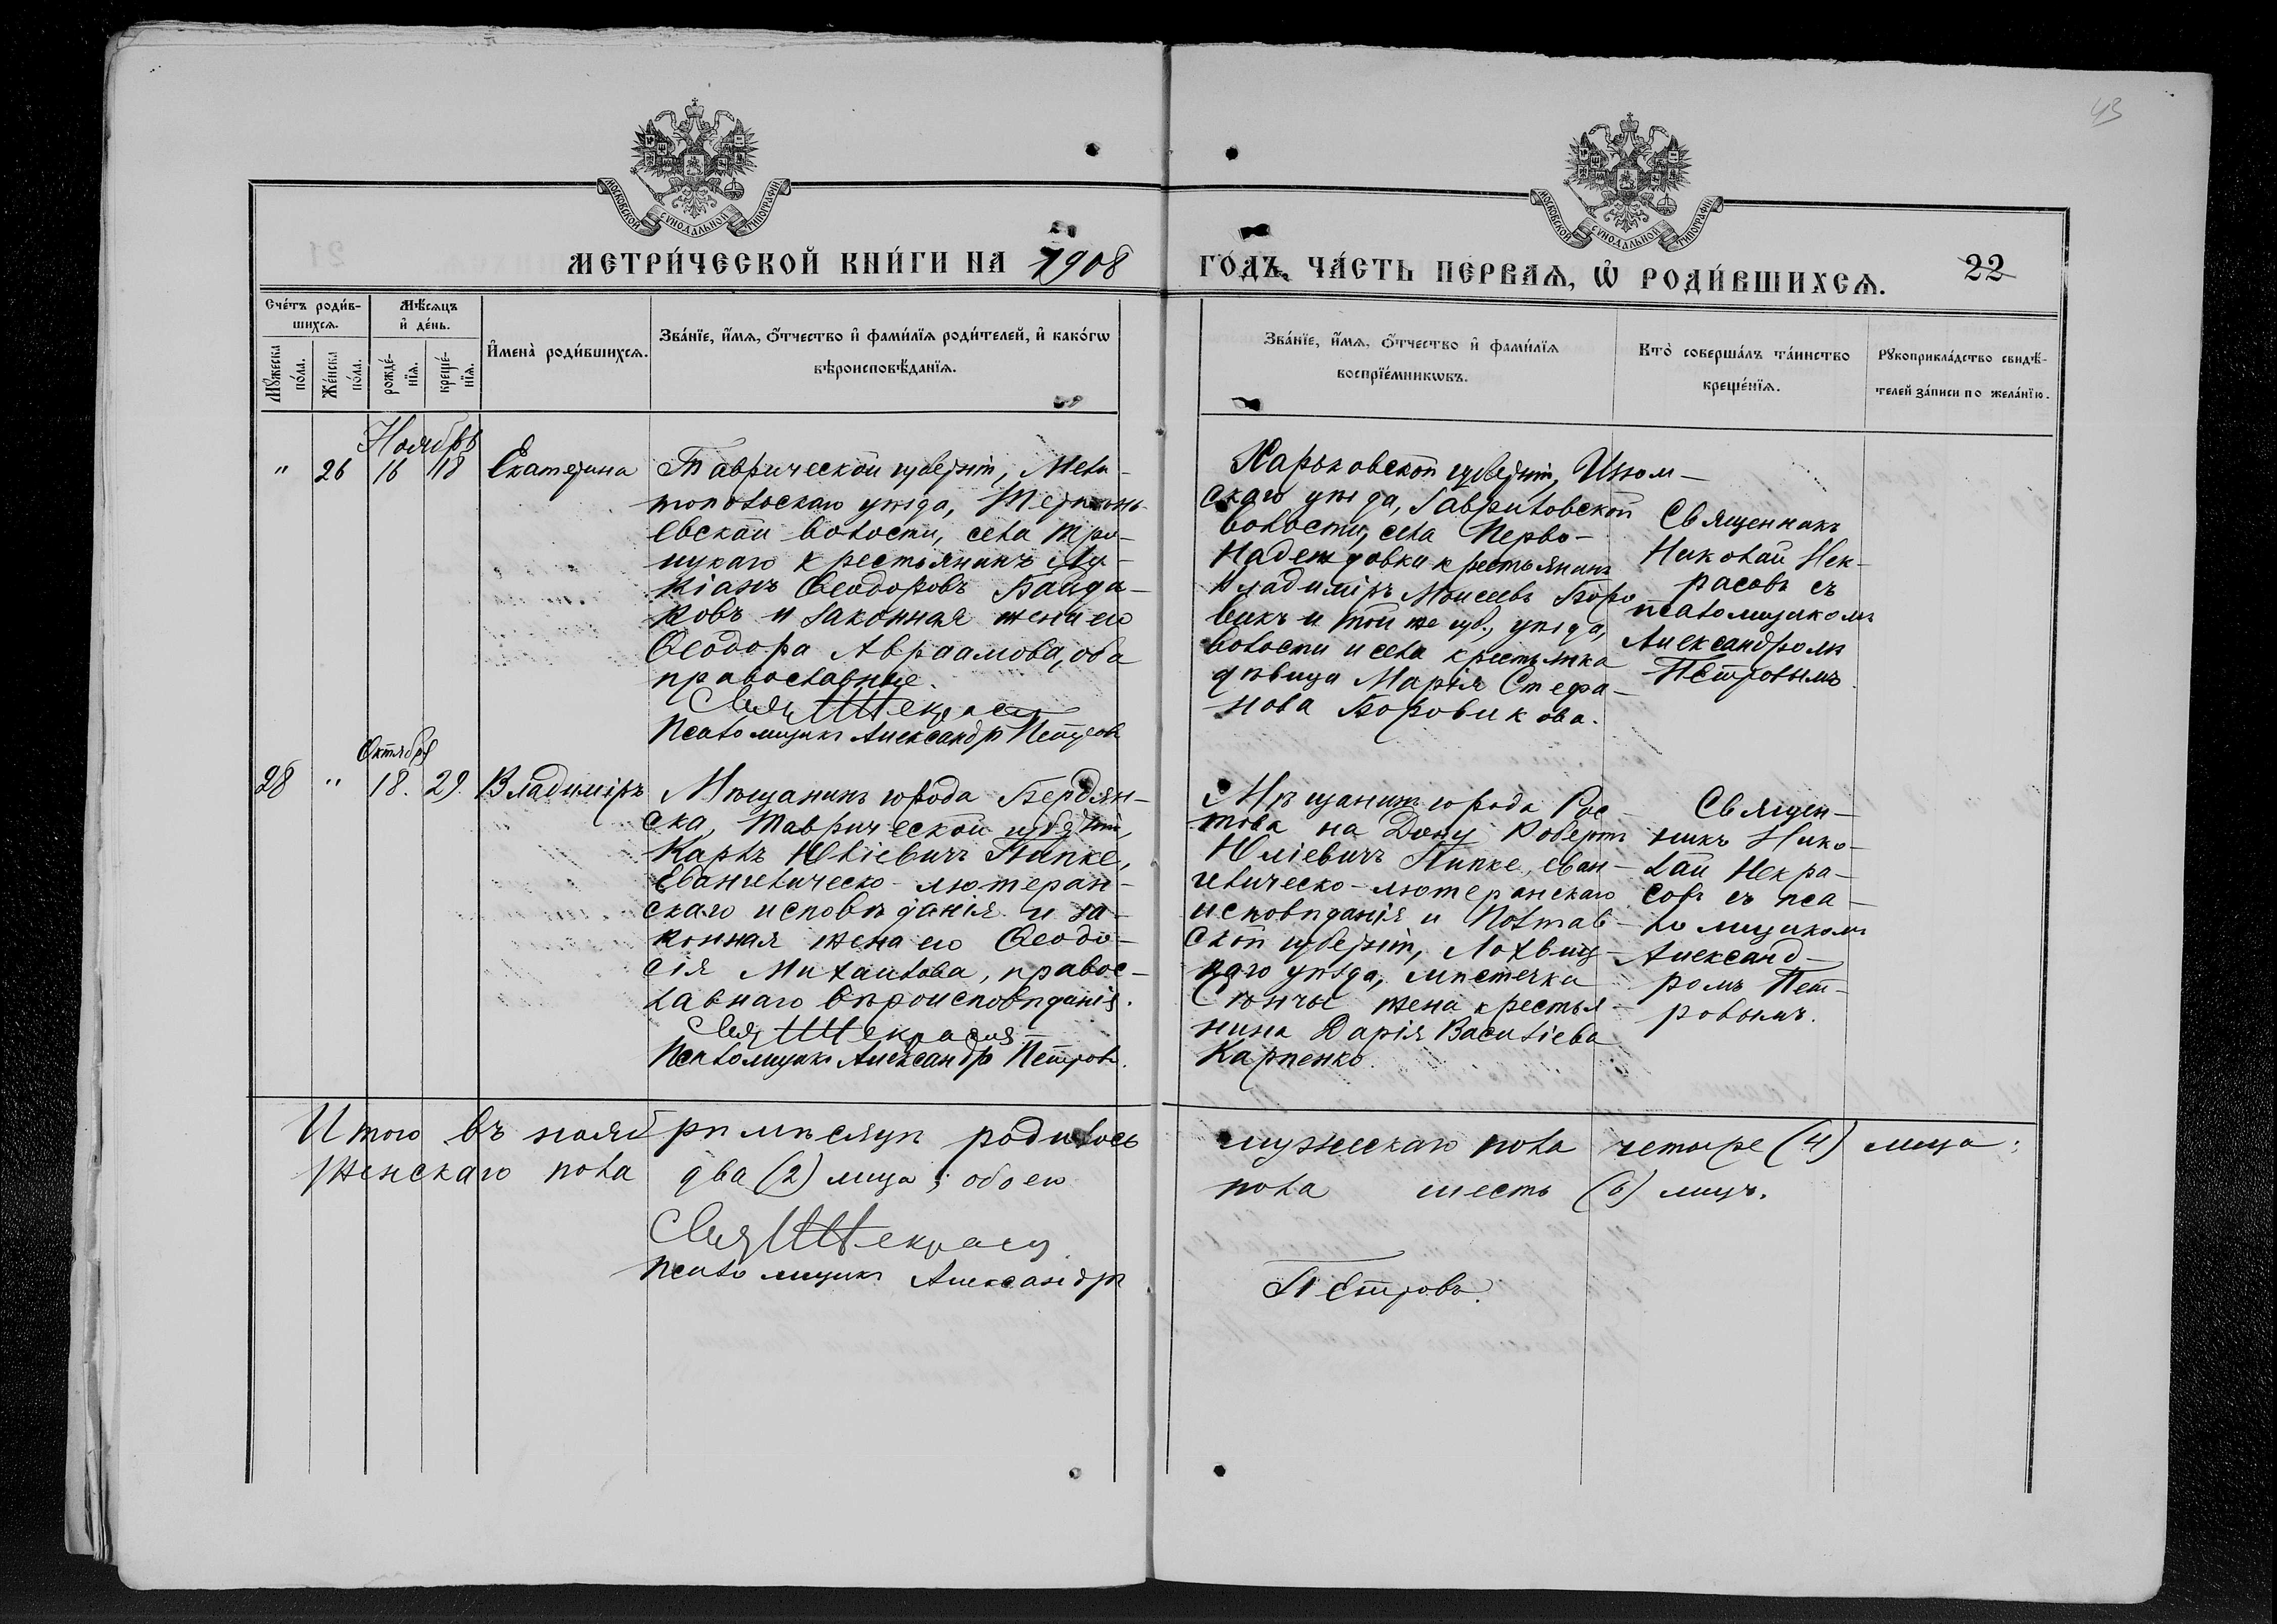 43
МОСКОВСКОЙ СѴНОДАЛЬНОЙ ТИПОГРАФІИ
МОСКОВСКОЙ СѴНОДАЛЬНОЙ ТИПОГРАФІИ
МЕТРИ́ЧЕСКОЙ КНИ́ГИ НА 1908
ГО́ДЪ, ЧА́СТЬ ПЕРВАѦ, Ѡ҆ РОДИ́ВШИХСѦ.
22
Сче́тъ роди́в-
шихсѧ.
Мѣсѧцъ
и҆ де́нь.
Мꙋ́жеска
по́ла.
Же́нска
по́ла.
рожде́-
нїѧ.
креще́-
нїѧ.
И҆мена̀ роди́вшихсѧ.
Зва́нїе, и҆́мѧ, ѻ҆́тчество и҆ фами́лїѧ роди́телей, и҆ како́гѡ
вѣроисповѣ́данїѧ.
Зва́нїе, и҆́мѧ, ѻ҆́тчество и҆ фами́лїѧ
воспрїе́мникѡвъ.
Кто̀ соверша́лъ та́инство
креще́нїѧ.
Рꙋкоприкла́дство свидѣ́-
телей за́писи по жела́нїю.
Ноябрь
" 26 16 18 Екатерина
Таврической губерніи, Мели-
топольскаго уѣзда, Терпень-
евской волости, села Тро-
ицкаго крестьянинъ Лу-
кіанъ Ѳеодоровъ Байда-
ковъ и законная жена его
Ѳеодора Авраамова, оба
православные.
Свящ. Н. Некрасов
Псаломщикъ Александръ Петровъ
Харьковской губерніи, Изюм-
скаго уѣзда, Гавриловской
волости, села Перво-
Надеждовки крестьянинъ
Владиміръ Моисеевъ Боро
викъ и той же губ., уѣзда,
волости и села крестьянка
дѣвица Марія Стефа-
нова Боровикова.
Священникъ
Николай Нек-
расовъ съ
псаломщикомъ
Александромъ
Петровымъ
Октября
28 " 18. 29. Владиміръ
Мѣщанинъ города Бердян-
ска, Таврической губерніи,
Карлъ Юліевичъ Пипке,
Евангелическо-лютеран-
скаго исповѣданія и за-
конная жена его Ѳеодо-
сія Михаилова, правос-
лавнаго вѣроисповѣданія.
Свящ. Н. Некрасов
Псаломщикъ Александръ Петровъ.
Мѣщанинъ города Рос-
това на Дону Робертъ
Юліевичъ Пипке, еван-
гелическо-лютеранскаго
исповѣданія и Полтав-
ской губерніи, Лохвиц-
каго уѣзда, мѣстечка
Сѣнчи жена крестья-
нина Дарія Василіева
Карпенко.
Священ-
никъ Нико-
лай Некра-
совъ съ пса-
ломщикомъ
Александ-
ромъ Пет-
ровымъ.
Итого въ ноябрѣ мѣсяцѣ родилось мужескаго пола четыре (4) лица;
женскаго пола два (2) лица; обоего пола шесть (6) лицъ.
Свящ. Н. Некрасов
Псаломщикъ Александръ Петровъ.